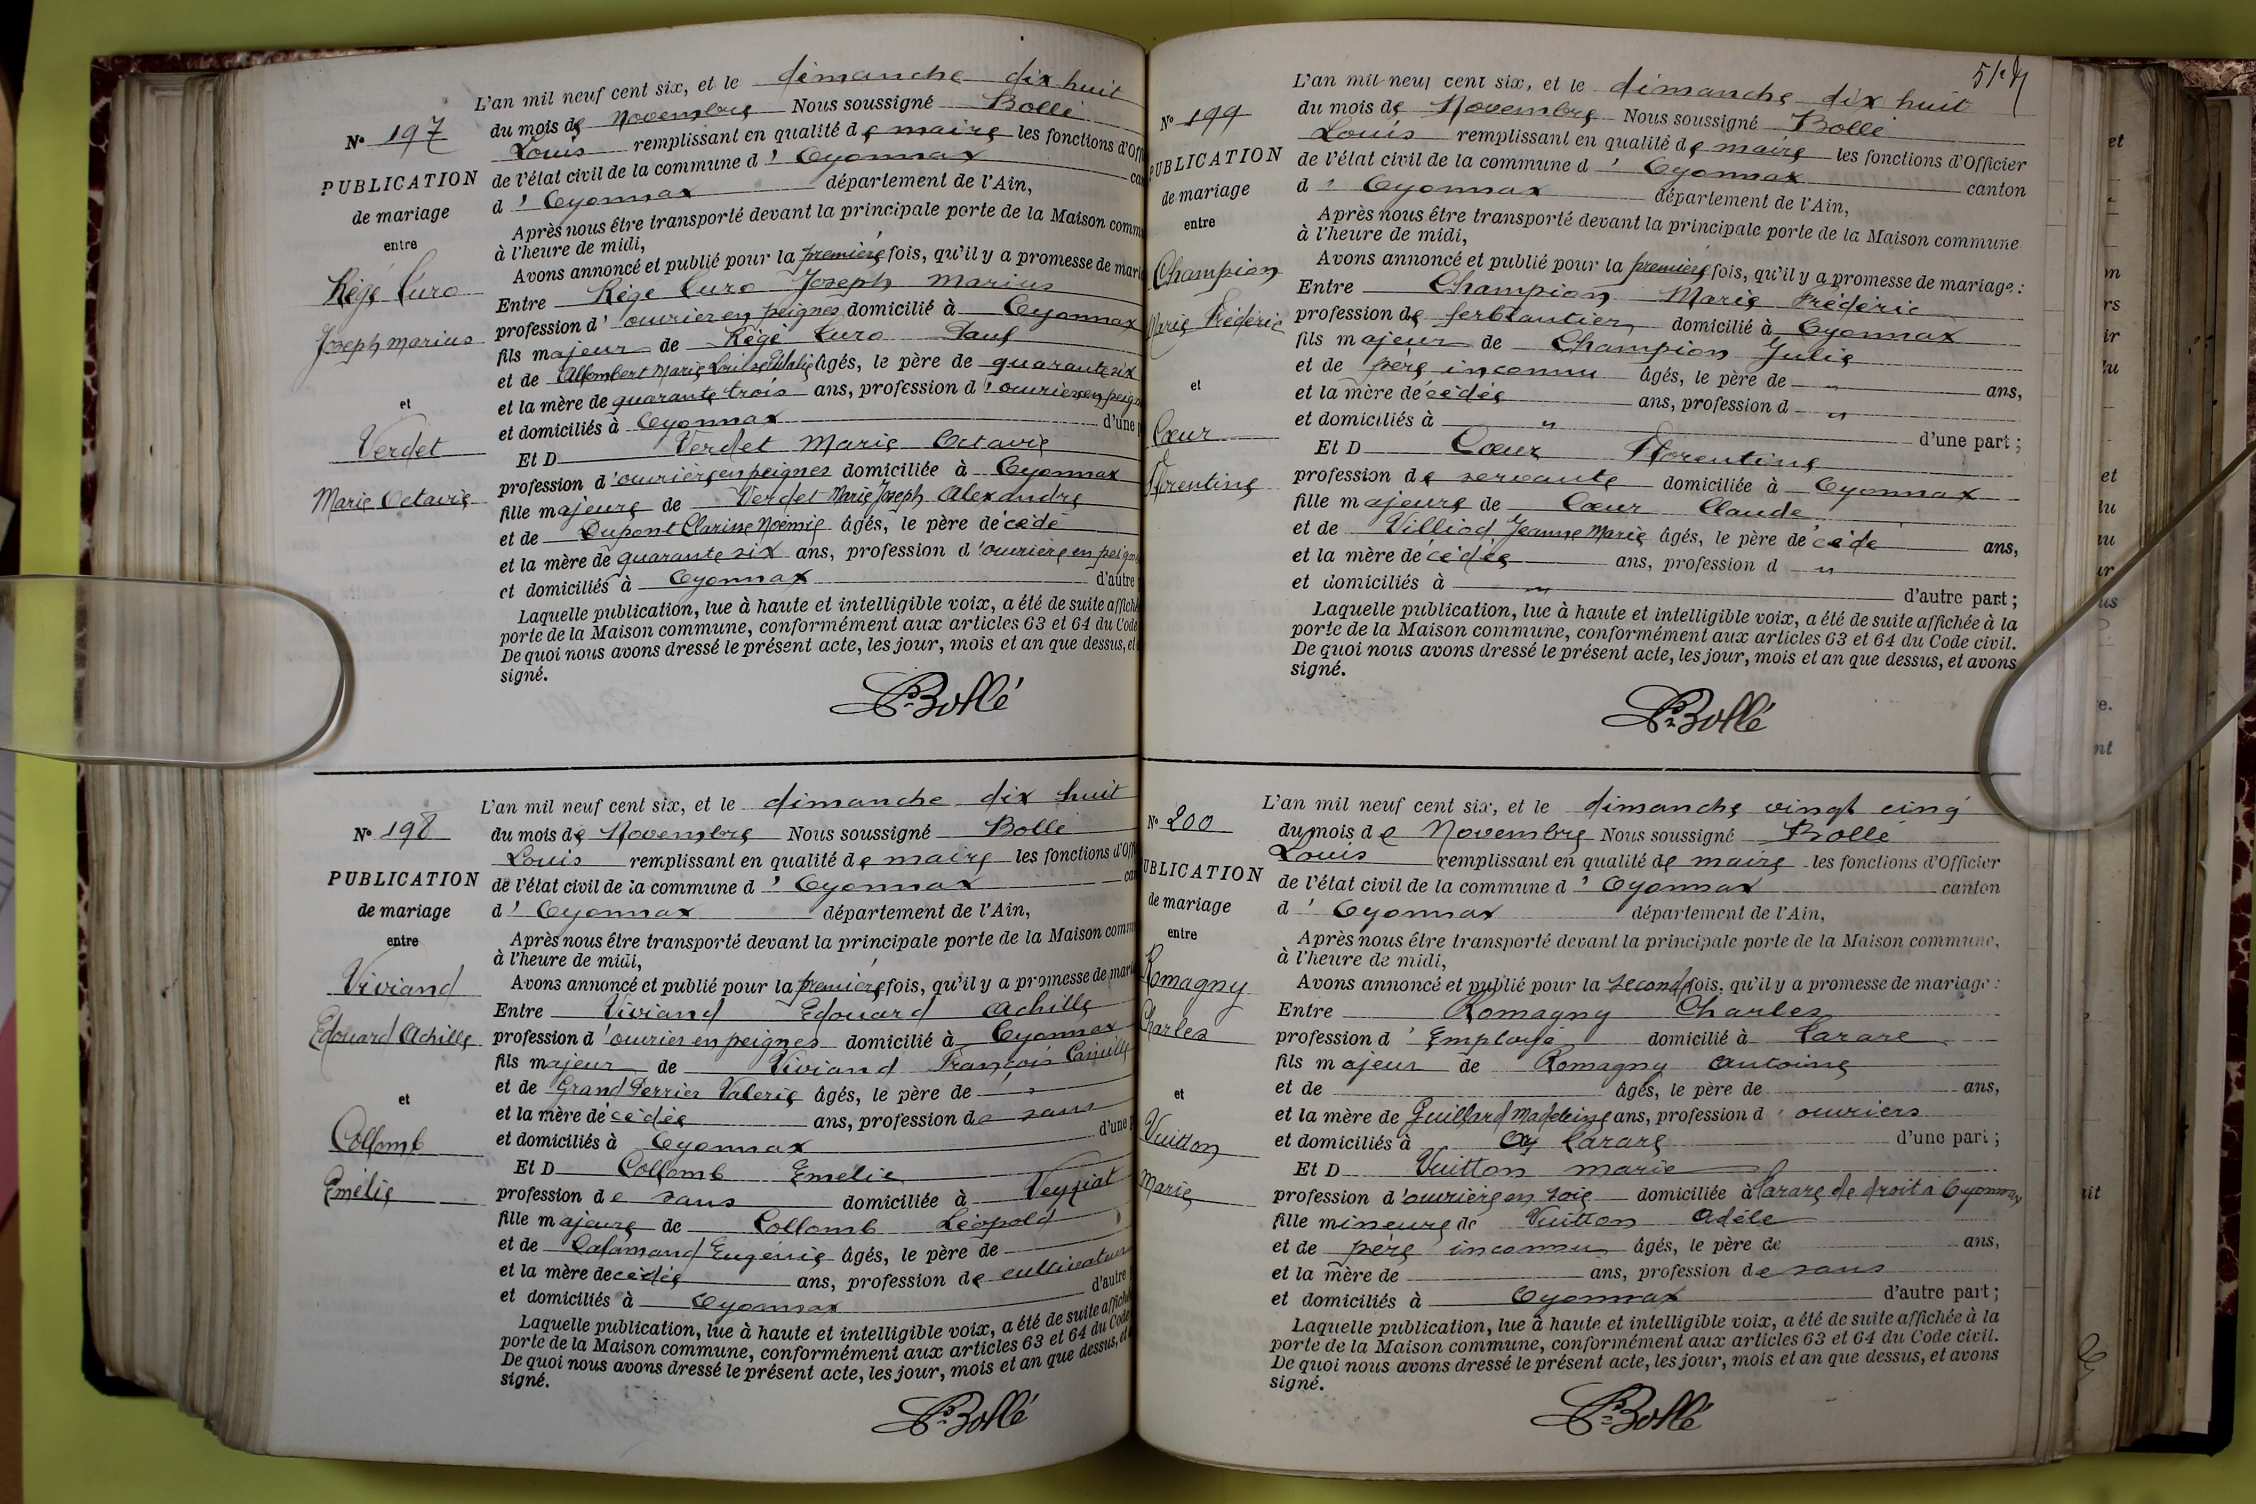 L'an mil neuf cent six, et le dimanche dix huit
Nº 197
du mois de Novembre Nous soussigné Bollé
Louis remplissant en qualité de maire les fonctions d'Off
PUBLICATION
de l'état civil de la commune d'Oyonnax can
de mariage
d'Oyonnax département de l'Ain,
entre
Après nous être transporté devant la principale porte de la Maison commu
à l'heure de midi,
Avons annoncé et publié pour la première fois, qu'il y a promesse de mari
Régé Turo
Joseph Marius
Entre Régé Turo Joseph Marius
profession d'ouvrier en peignes domicilié à Oyonnax
fils majeur de Régé Turo Paul
et de Allombert Marie Louise Eulalie âgés, le père de quarante six
et la mère de quarante trois ans, profession d'ouvrier en peign
et domiciliés à Oyonnax d'une p
et
Verdet
Marie Octavie
Et D Verdet Marie Octavie
profession d'ouvrière en peignes domiciliée à Oyonnax
fille majeure de Verdet Marie Joseph Alexandre
et de Dupont Clarisse Noémie âgés, le père décédé
et la mère de quarante six ans, profession d'ouvrière en peignes
et domiciliés à Oyonnax d'autre
Laquelle publication, lue à haute et intelligible voix, a été de suite affiché
porte de la Maison commune, conformément aux articles 63 et 64 du Code
De quoi nous avons dressé le présent acte, les jour, mois et an que dessus, et
signé.
L. Bollé
L'an mil neuf cent six, et le dimanche dix huit
Nº 198
du mois de Novembre Nous soussigné Bollé
Louis remplissant en qualité de maire les fonctions d'Off
PUBLICATION
de l'état civil de la commune d'Oyonnax can
de mariage
d'Oyonnax département de l'Ain,
entre
Après nous être transporté devant la principale porte de la Maison comm
à l'heure de midi,
Avons annoncé et publié pour la première fois, qu'il y a promesse de mari
Viviand
Edouard Achille
Entre Viviand Edouard Achille
profession d'ouvrier en peignes domicilié à Oyonnax
fils majeur de Viviand François Camille
et de Grand Perrier Valerie âgés, le père de "
et la mère décédée ans, profession de sans
et domiciliés à Oyonnax d'une p
et
Collomb
Emélie
Et D Collomb Emelie
profession de sans domiciliée à Veyziat
fille majeure de Collomb Léopold
et de Lafamand Eugenie âgés, le père de
et la mère decédée ans, profession de cultivateur
et domiciliés à Oyonnax d'autre
Laquelle publication, lue à haute et intelligible voix, a été de suite affiché
porte de la Maison commune, conformément aux articles 63 et 64 du Code
De quoi nous avons dressé le présent acte, les jour, mois et an que dessus, et
signé.
L. Bollé
L'an mil neuf cent six, et le dimanche dix huit
Nº 199
du mois de Novembre Nous soussigné Bollé
Louis remplissant en qualité de maire les fonctions d'Officier
PUBLICATION
de l'état civil de la commune d'Oyonnax canton
de mariage
d'Oyonnax département de l'Ain,
entre
Après nous être transporté devant la principale porte de la Maison commune
à l'heure de midi,
Avons annoncé et publié pour la première fois, qu'il y a promesse de mariage :
Champion
Marie Frédéric
Entre Champion Marie Frédéric
profession de ferblantier domicilié à Oyonnax
fils majeur de Champion Julie
et de père inconnu âgés, le père de " ans,
et la mère décédée ans, profession d "
et domiciliés à " d'une part ;
et
Cœur
Florentine
Et D Cœur Florentine
profession de servante domiciliée à Oyonnax
fille majeure de Cœur Claude
et de Villiod Jeanne Marie âgés, le père décédé ans,
et la mère décédée ans, profession d "
et domiciliés à " d'autre part ;
Laquelle publication, lue à haute et intelligible voix, a été de suite affichée à la
porte de la Maison commune, conformément aux articles 63 et 64 du Code civil.
De quoi nous avons dressé le présent acte, les jour, mois et an que dessus, et avons
signé.
L. Bollé
L'an mil neuf cent six, et le dimanche vingt cinq
Nº 200
du mois de Novembre Nous soussigné Bollé
Louis remplissant en qualité de maire les fonctions d'Officier
PUBLICATION
de l'état civil de la commune d'Oyonnax canton
de mariage
d'Oyonnax département de l'Ain,
entre
Après nous être transporté devant la principale porte de la Maison commune,
à l'heure de midi,
Avons annoncé et publié pour la seconde fois, qu'il y a promesse de mariage :
Romagny
Charles
Entre Romagny Charles
profession d'Employé domicilié à Tarare
fils majeur de Romagny Antoine
et de âgés, le père de ans,
et la mère de Guillard Madeleine ans, profession d'ouvriers
et domiciliés à Tarare d'une part ;
et
Vuitton
Marie
Et D Vuitton Marie
profession d'ouvrière en soie domiciliée à Tarare de droit à Oyonnax
fille mineure de Vuitton Adèle
et de père inconnu âgés, le père de ans,
et la mère de ans, profession de sans
et domiciliés à Oyonnax d'autre part ;
Laquelle publication, lue à haute et intelligible voix, a été de suite affichée à la
porte de la Maison commune, conformément aux articles 63 et 64 du Code civil.
De quoi nous avons dressé le présent acte, les jour, mois et an que dessus, et avons
signé.
L. Bollé